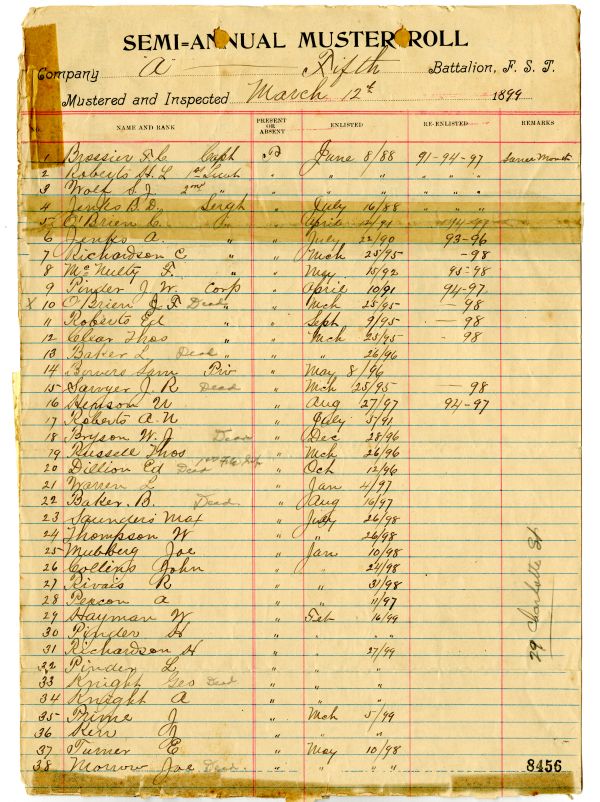 SEMI=ANNUAL MUSTER ROLL
Company A Fifth Battalion, F. S. T.
Mustered and Inspected March 12th 1899
No. NAME AND RANK PRESENT OR ABSENT ENLISTED RE-ENLISTED REMARKS
1 Brossier F. C. Capt P June 8/88 91-94-97
2 Roberts H. L 1st Lieut " " " " " "
3 Wolf S. J. 2nd " " " " " " "
4 Jenks B. D. Sergt " July 16/88 " " "
5 O'Brien C. " " April 12/91
6 Jenks A. " " July 22/90 93-96
7 Richardson C " " Mch 25/95 -98
8 McNulty F. " " May 15/92 95-98
9 Pinder J. W. Corp " April 10/91 94-97
X 10 O'Brien J. F Dead " " Mch 25/95 - 98
11 Roberts Ed " " Sept 9/95 - 98
12 Clear Thos " " Mch 25/95 - 98
13 Baker L Dead " " " 26/96
14 Bowers Sam Priv " May 8/96
15 Sawyer J. R Dead " Mch 25/95 - 98
16 Henson W " Aug 27/97 94-97
17 Roberts A. N " July 5/91
18 Bryson W. J Dead " Dec 28/96
19 Russell Thos " Mch 26/96
20 Dillion Ed Dead " Oct 12/96
21 Warren L. " Jan 4/97
22 Baker. B. Dead " Aug 16/97
23 Saunders Max " 26/98
24 Thompson W " " 26/98
25 Mubberg Joe " Jan 10/98
26 Collins John " " 24/98
27 Rivais R " " 31/98
28 Percon A " " 11/97
29 Hayman W " Feb 16/99
30 Pinder H " " "
31 Richardson H " " 27/99
32 Pinder L " " "
33 Knight Geo Dead " " "
34 Knight A " " "
35 Prime J " Mch 5/99
36 Kerr J " " "
37 Turner E " May 10/98
38 Morrow Joe Dead " " "
29 Charlotte St
8456